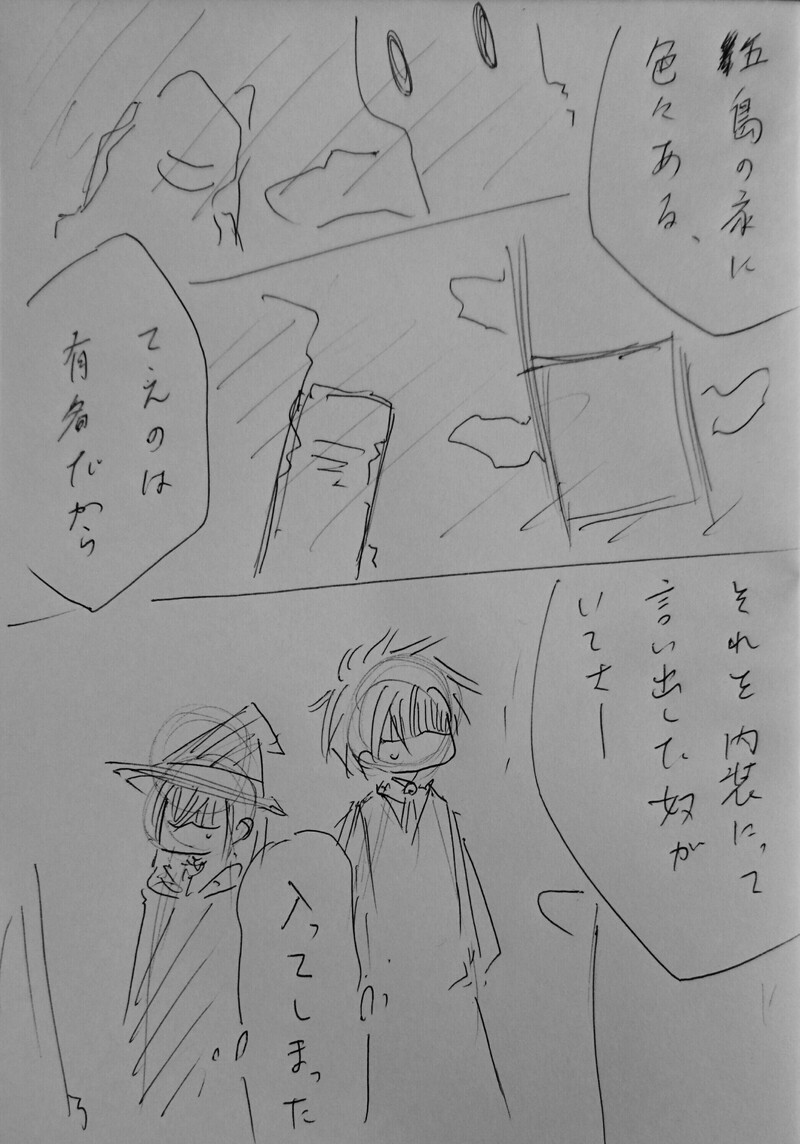 五島の家に
色々ある、
てえのは
有名だから
それを内装にって
言い出した奴が
いてさー
入ってしまった